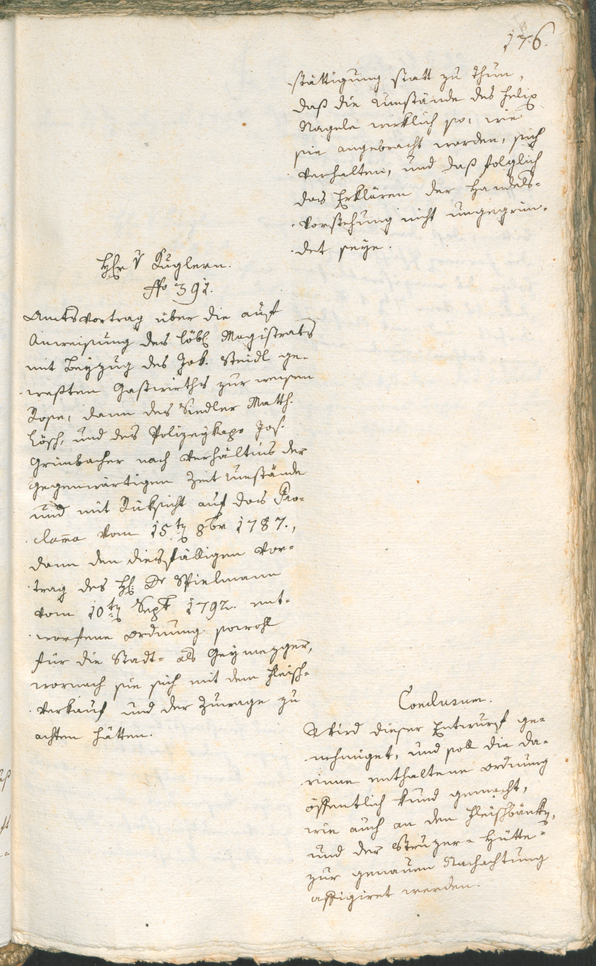 176.
stättigung statt zu thun,
daß die Umstände des Felix
Nagele wirklich so, wie
sie angebracht worden, sich
verhalten, und daß folglich
das Erklären der Handels-
vorstehung nicht ungegrün-
det seye.
Hr. v
No 391.
Amtsvortrag über die auf
Anweisung des löbl. Magistrats
mit Beyzug des Jak. Steidl ge-
westen Gastwirths zur weisen
Rose, dann des Siedler Matth.
Lösch, und des Polizeykaps Jos.
Grünbacher nach Verhältnis der
gegenwärtigen Zeit Umstände
und mit Rüksicht auf das Pro-
clama vom 15ten 8br 1787.,
dann den diesfälligen Vor-
trag des H. Dr Spielmann
vom 10ten Sept 1792. ent-
worfene Ordnung sowohl
für die Stadt- als Geymezger,
wornach sie sich mit dem Fleisch-
verkauf und der Zuwage zu
achten hätten.
Conclusum.
Wird dieser Entwurf ge-
nehmiget, und soll die da-
rinne enthaltene Ordnung
öffentlich kund gemacht,
wie auch an den Fleischbänke,
und der Strüzer-Hütte
zur genauen Nachachtung
affigiret werden.